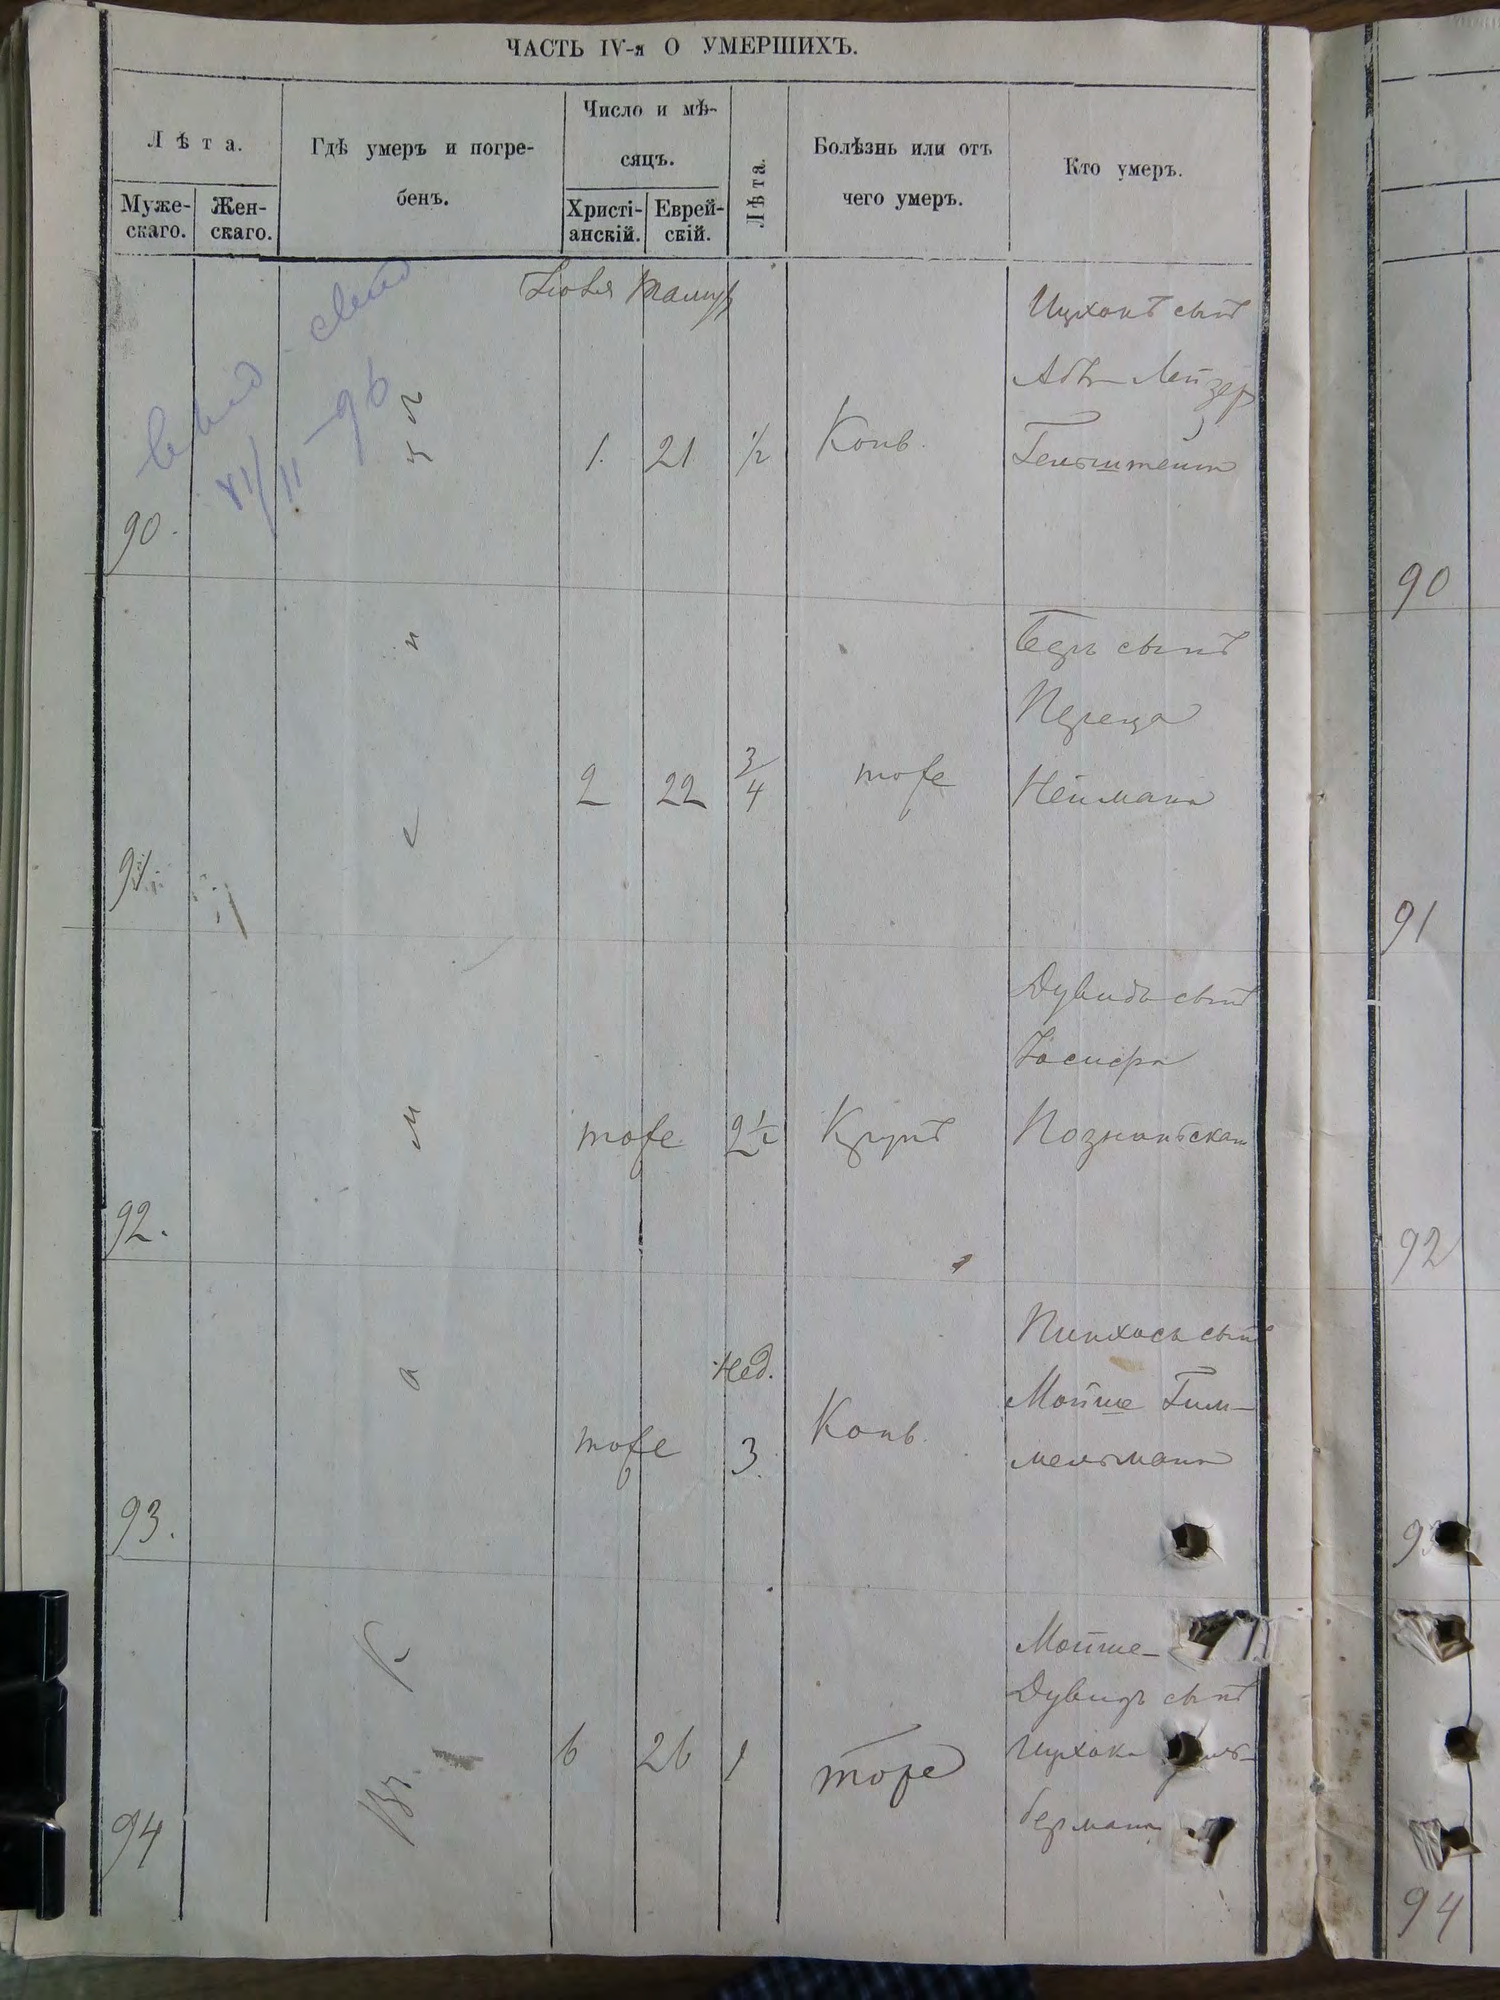 ЧАСТЬ IV-я О УМЕРШИХЪ.
Лѣта.
Муже-
скаго.
Жен-
скаго.
Гдѣ умеръ и погре-
бенъ.
Число и мѣ-
сяцъ.
Христі-
анскій.
Еврей-
скій.
Лѣта.
Болѣзнь или отъ
чего умеръ.
Кто умеръ.
Іюля Тамуз
90.
1.
21
1/2
Конв.
Ицхокъ сынъ
Аба-Лейзер
Гельштейна
90
91.
2
22
3/4
тоже
Беръ сынъ
Переца
Неймана
91
92.
тоже
2 1/2
Крупъ
Дувидъ сынъ
Іосифа
Познанскаго
92
93.
тоже
Нед.
3.
Конв.
Пинхасъ сынъ
Мойше Гим-
мельмана
93
94
6
26
1
тоже
Мойше-
Дувидъ сынъ
Ицхока
бермана
94
Въ К а м е н